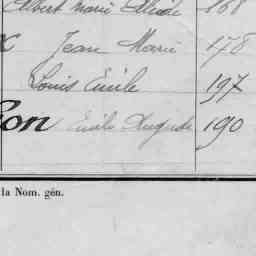 Albert Marie 168
x Jean Marie 178
Louis Emile 197
on Emile Auguste 190
la Nom. gén.